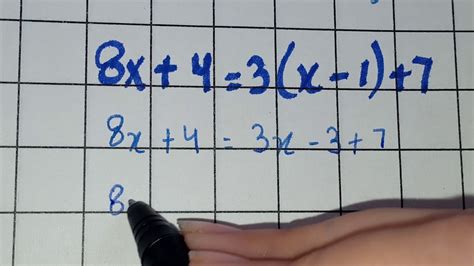 8x + 4 = 3(x - 1) + 7
8x + 4 = 3x - 3 + 7
8